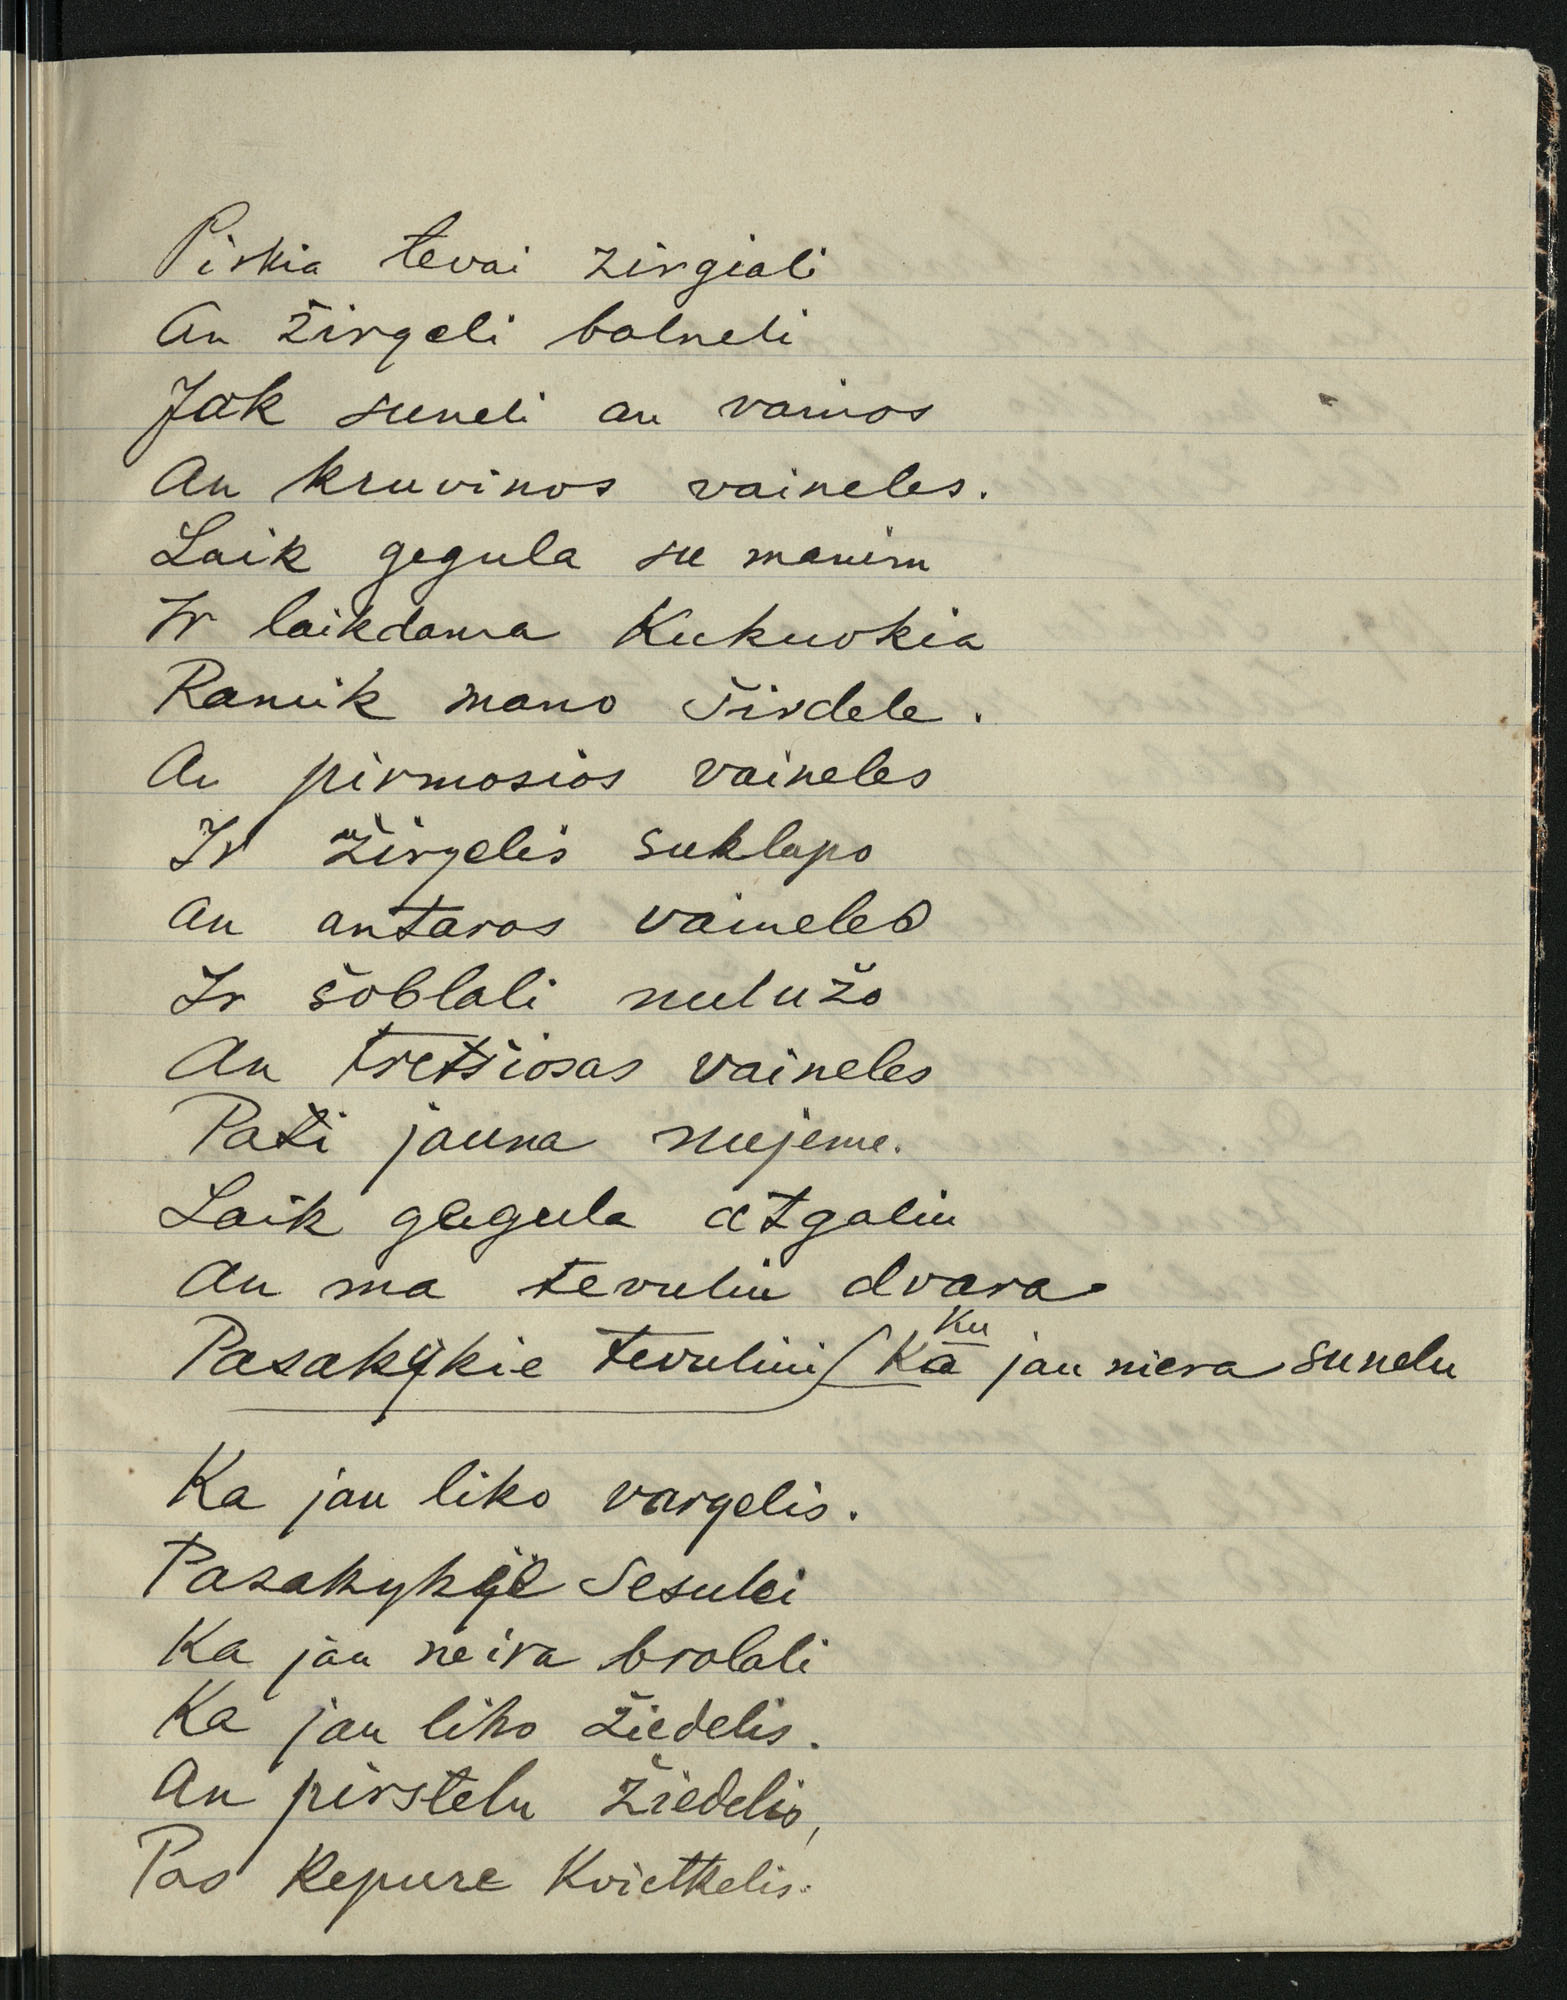 Pirkia tevai zirgiali
An žirgeli balneli
Jak suneli an vainos
An kruvinos vaineles.
Laik gegula su manim
Ir laikdama Kukuokia
Ramik mano širdele.
An pirmosios vaineles
Ir žirgelis suklupo
An antaros vaineles
Ir šoblali nulužo
An tretšiosas vaineles
Pati jauna nujeme.
Laik gegula atgaliu
An ma tevuliu dvara
Pasakykie tevulini Ka Ku jau niera sunelu
Ka jau liko vargelis.
Pasakykie Sesulei
Ka jau neira brolali
Ka jau liko žiedelis.
An pirstelu žiedelis,
Pas Kepure Kvietkelis.